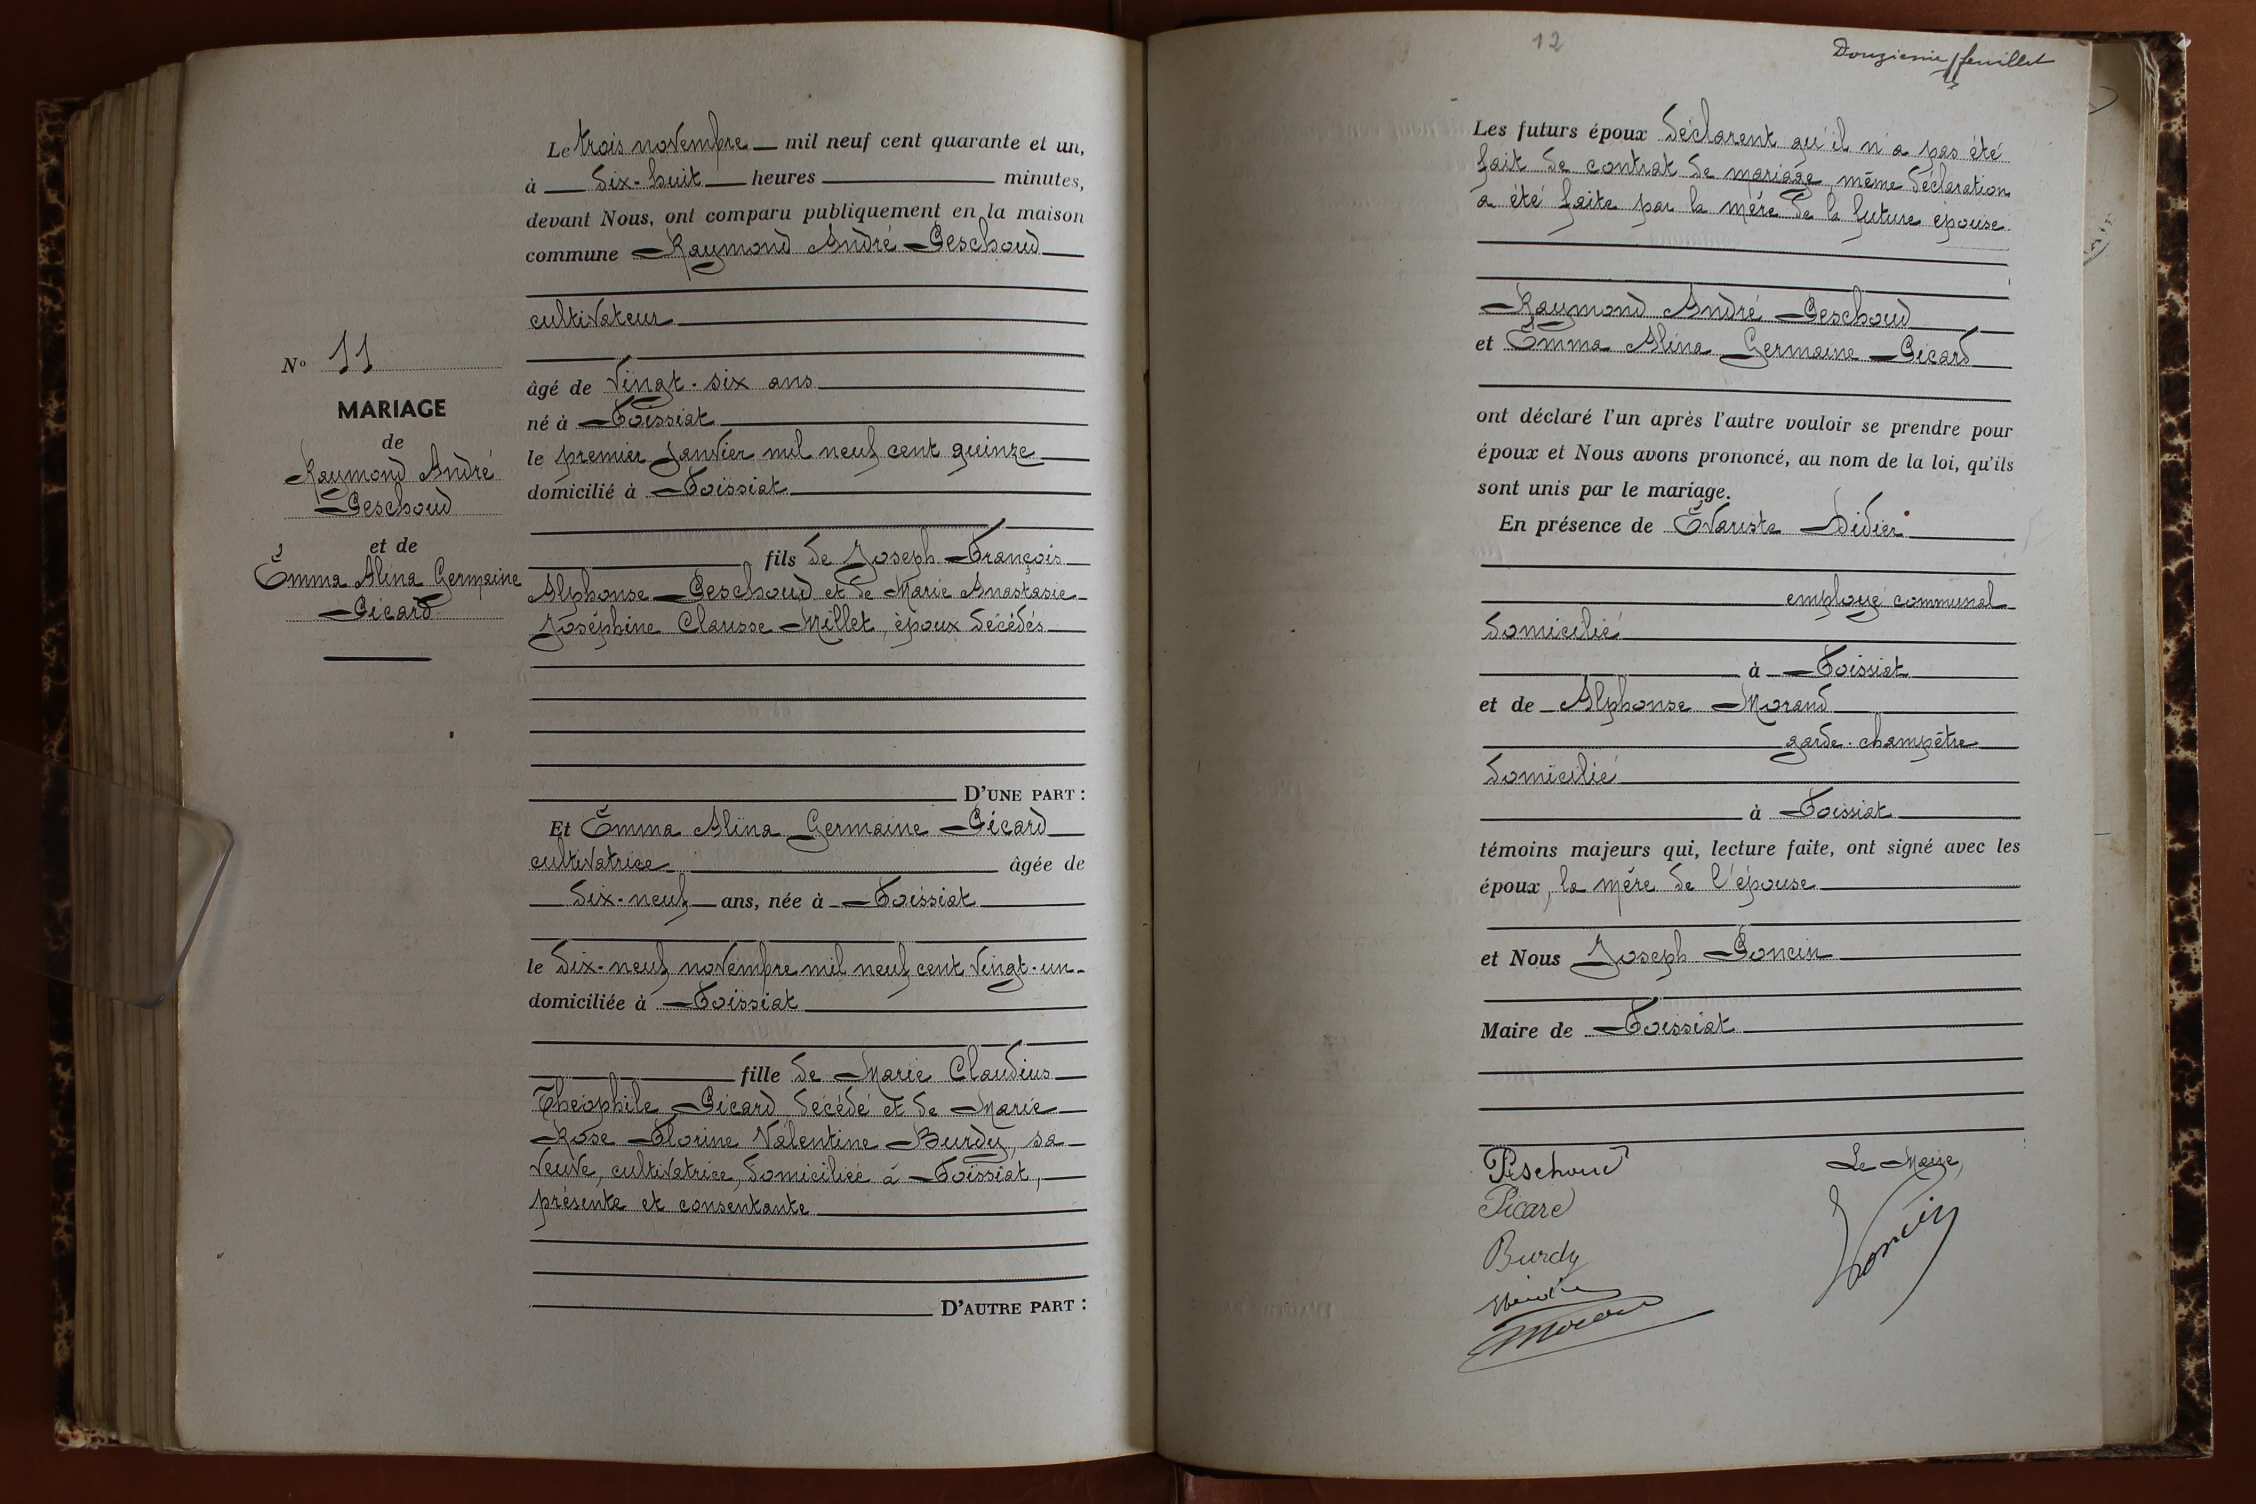 Le trois novembre mil neuf cent quarante et un,
à dix-huit heures minutes,
devant Nous, ont comparu publiquement en la maison
commune Raymond André Peschoud
cultivateur
N° 11
MARIAGE
de
Raymond André
Peschoud
et de
Emma Alina Germaine
Picard
âgé de vingt-six ans
né à Foissiat
le premier janvier mil neuf cent quinze
domicilié à Foissiat
fils de Joseph François
Alphonse Peschoud et de Marie Anastasie
Joséphine Clausse Millet, époux décédés
D'UNE PART :
Et Emma Alina Germaine Picard
cultivatrice âgée de
dix-neuf ans, née à Foissiat
le dix-neuf novembre mil neuf cent vingt-un
domiciliée à Foissiat
fille de Marie Claudius
Théophile Picard décédé et de Marie
Rose Florine Valentine Burdy, sa
veuve, cultivatrice, domiciliée à Foissiat,
présente et consentante
D'AUTRE PART :
12
Douzième feuillet
Les futurs époux déclarent qu'il n'a pas été
fait de contrat de mariage, même déclaration
a été faite par la mère de la future épouse.
Raymond André Peschoud
et Emma Alina Germaine Picard
ont déclaré l'un après l'autre vouloir se prendre pour
époux et Nous avons prononcé, au nom de la loi, qu'ils
sont unis par le mariage.
En présence de Evariste Didier
employé communal
domicilié
à Foissiat
et de Alphonse Morand
garde-champêtre
domicilié
à Foissiat
témoins majeurs qui, lecture faite, ont signé avec les
époux, la mère de l'épouse
et Nous Joseph Poncin
Maire de Foissiat
Peschoud
Le Maire,
Picard
Poncin
Burdy
Morand